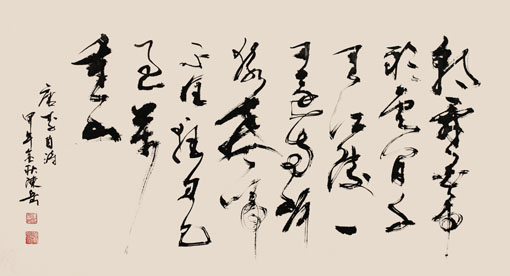 朝辭白帝
彩雲間千
里江陵一
日還兩岸
猿聲啼
不住輕舟已
過萬
重山
唐李白詩
甲午秋陳